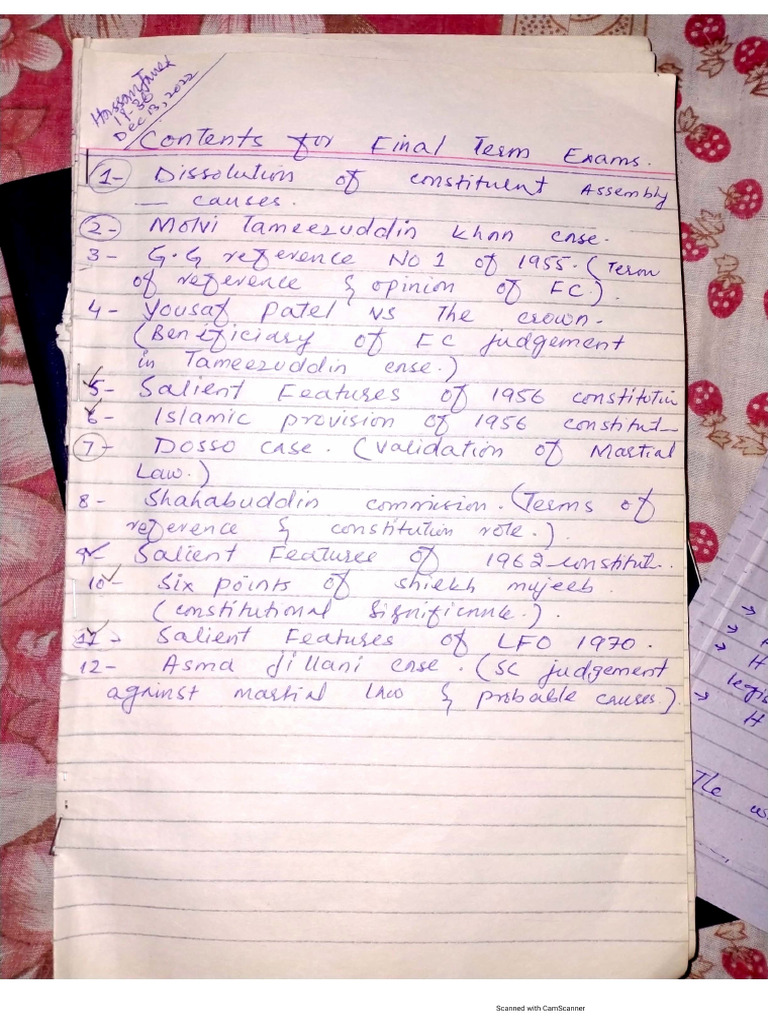 Hassan Javed
19-36
Dec 13, 2022
Contents for Final Term Exams.
1- Dissolution of constituent Assembly
— causes.
2- Molvi Tameezuddin Khan case.
3- G.G reference No 1 of 1955. (Term
of reference & opinion of FC.).
4- Yousaf Patel vs The crown.
(Beneficiary of FC judgement
in Tameezuddin case.)
5- Salient Features of 1956 constitution
6- Islamic provision of 1956 constitut
7- Dosso case. (Validation of Martial
Law.)
8- Shahabuddin commision. (Terms of
reference & constitution role.).
9- Salient Features of 1962 constitut.
10- Six points of shiekh mujeeb.
(constitutional significance.).
11- Salient Features of LFO 1970.
12- Asma Jillani case. (SC judgement
against martial law & probable causes.).
legis
H
The us
Scanned with CamScanner